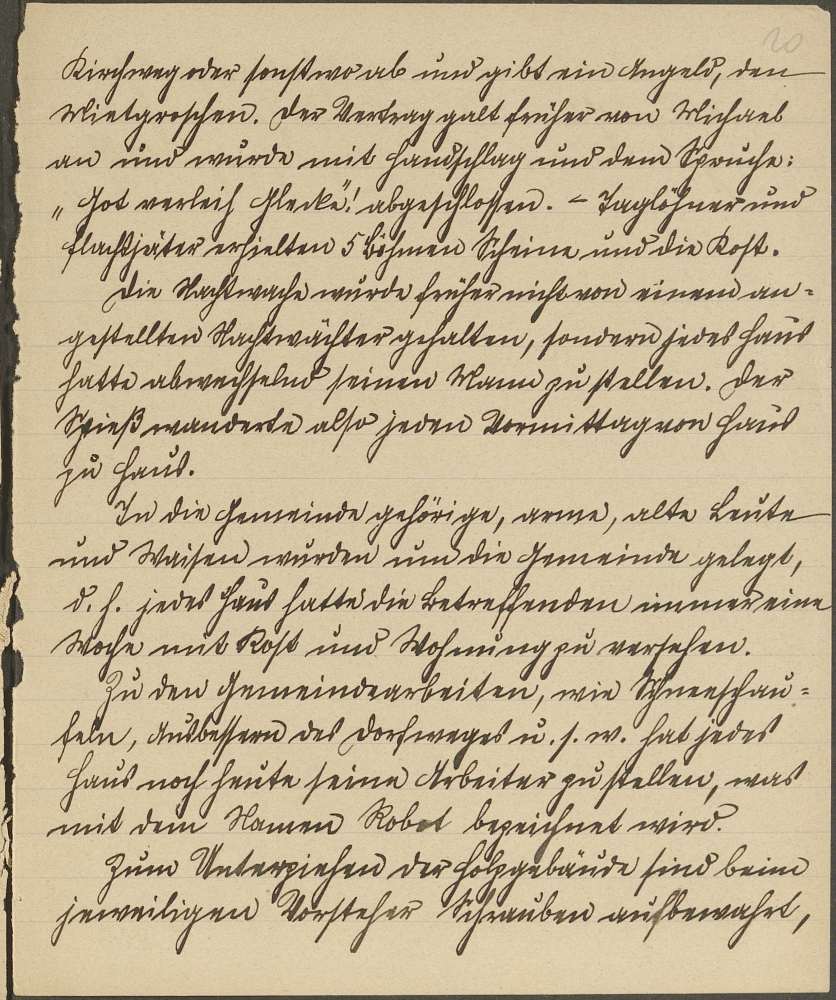 20
Kirchweg oder sonstwo ab und gibt ein Angeld, den
Mietgroschen. Der Vertrag galt früher von Michael
an und wurde mit Handschlag und dem Spruche:
„Got verleih Glecke"! abgeschlossen. – Taglöhner und
Flachsjäter erhielten 5 Böhmen Scheine und die Kost.
Die Nachtwache wurde früher nicht von einem an=
gestellten Nachtwächter gehalten, sondern jedes Haus
hatte abwechselnd seinen Mann zu stellen. Der
Spieß wanderte also jeden Vormittag von Haus
zu Haus.
In die Gemeinde gehörige, arme, alte Leute
und Waisen wurden um die Gemeinde gelegt,
d. h. jedes Haus hatte die Betreffenden immer eine
Woche mit Kost und Wohnung zu versehen.
Zu den Gemeindearbeiten, wie Schneeschau=
feln, Ausbessern des Dorfweges u. s. w. hat jedes
Haus noch heute seine Arbeiter zu stellen, was
mit dem Namen Robot bezeichnet wird.
Zum Unterziehen der Holzgebäude sind beim
jeweiligen Vorsteher Schrauben aufbewahrt,